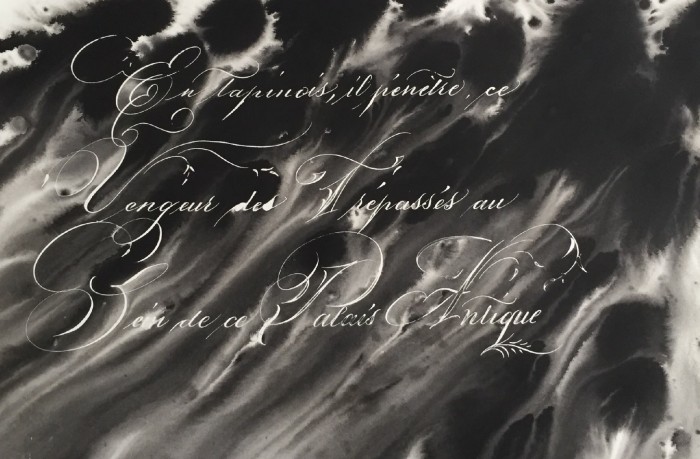 En tapinois, il pénètre, ce
Vengeur des Trépassés au
Sein de ce Palais Antique